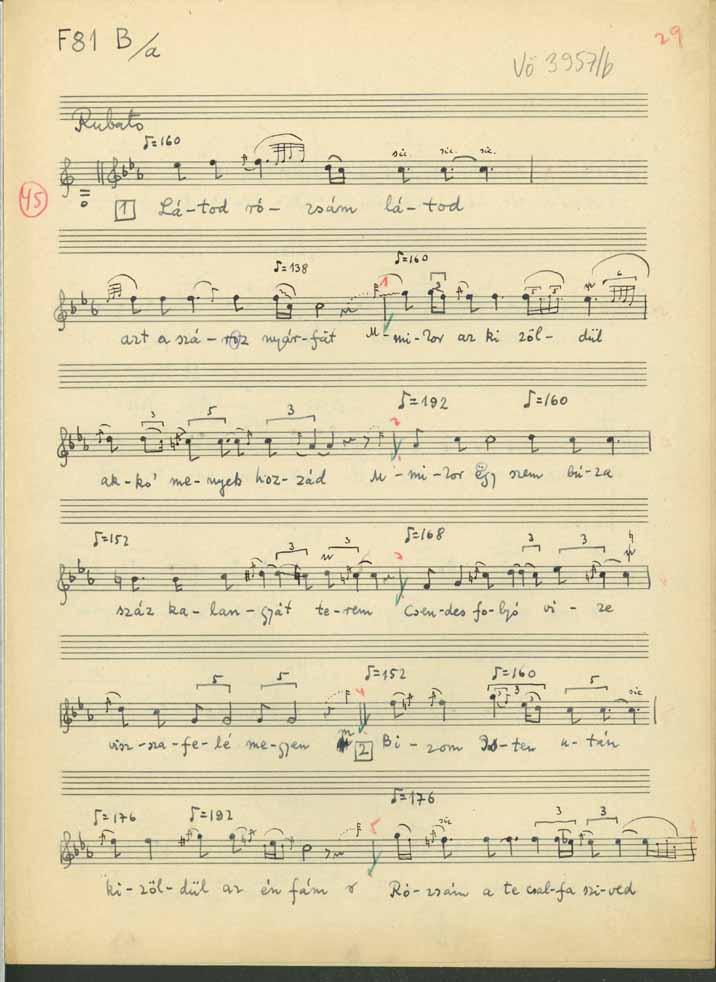 F81 B/a
Vö 3957/b
29
Rubato
♪=160
sic. sic. sic.
45
1 Lá-tod ró- zsám lá-tod
♪=138 ♪=160
1
6
azt a szá- nyár-fát M-mi-kor az ki zöl- dül
♪=192 ♪=160
3 5 3
2
ak-ko' me-nyek hoz-zád M-mi-kor egy szem bú-za
♪=152 ♪=168
3 3 3 3
3
száz ka-lan-gyát te-rem Csen-des fo-lyó vi- ze
♪=152 ♪=160
5 5 3 5 sic
4
visz-sza-fe-lé me-gyen 2 Bi-zom Is-ten u-tán
♪=176 ♪=192 ♪=176
sic 3 3
5
ki-zöl-dül az én fám r Ró-zsám a te csal-fa szi-ved